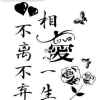 相爱一生
不离不弃